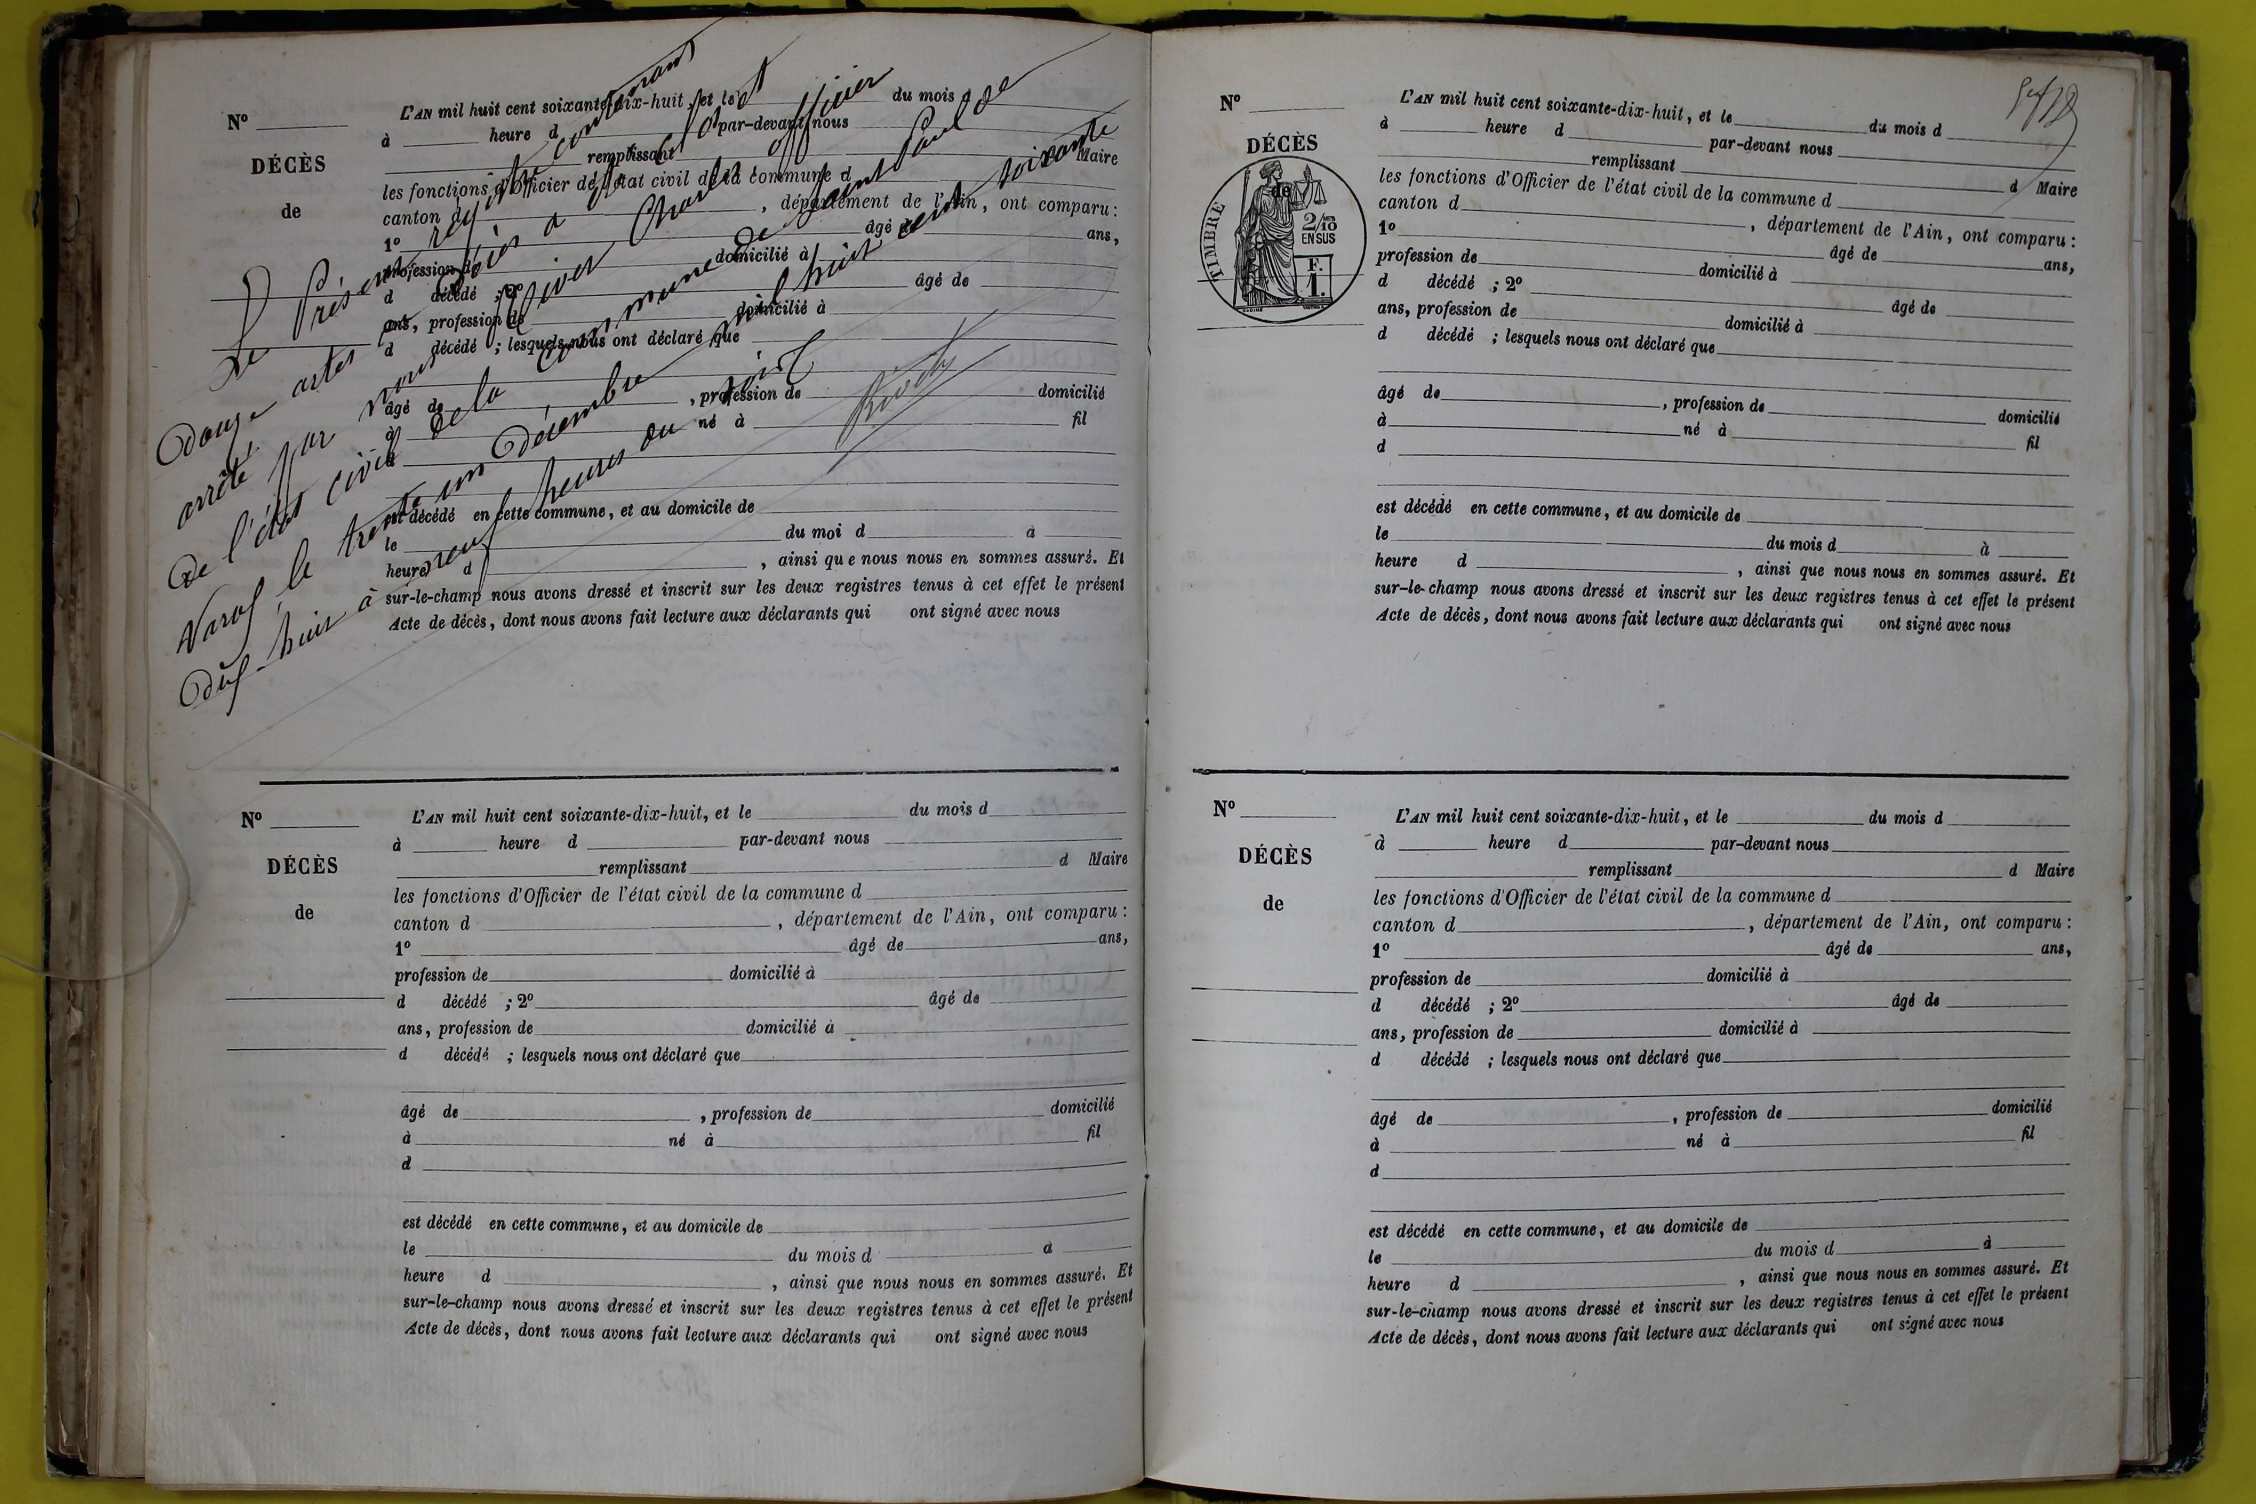 Le Présent registre contenant
Douze actes de décès a été clos et
arrêté par nous Olivier Charles officier
de l'état civil de la commune de Saint Paul de
Varax, le trente un décembre mil huit cent soixante
dix-huit à neuf heures du soir
N°
DÉCÈS
de
L'AN mil huit cent soixante-dix-huit, et le du mois d
à heure d par-devant nous
remplissant d Maire
les fonctions d'Officier de l'état civil de la commune d
canton d , département de l'Ain, ont comparu :
1° âgé de ans,
profession de domicilié à
d décédé ; 2° âgé de
ans, profession de domicilié à
d décédé ; lesquels nous ont déclaré que
âgé de , profession de domicilié
à né à fil
d
est décédé en cette commune, et au domicile de
le du moi d à
heure d , ainsi que nous nous en sommes assuré. Et
sur-le-champ nous avons dressé et inscrit sur les deux registres tenus à cet effet le présent
Acte de décès, dont nous avons fait lecture aux déclarants qui ont signé avec nous
N°
DÉCÈS
de
L'AN mil huit cent soixante-dix-huit, et le du mois d
à heure d par-devant nous
remplissant d Maire
les fonctions d'Officier de l'état civil de la commune d
canton d , département de l'Ain, ont comparu :
1° âgé de ans,
profession de domicilié à
d décédé ; 2° âgé de
ans, profession de domicilié à
d décédé ; lesquels nous ont déclaré que
âgé de , profession de domicilié
à né à fil
d
est décédé en cette commune, et au domicile de
le du mois d à
heure d , ainsi que nous nous en sommes assuré. Et
sur-le-champ nous avons dressé et inscrit sur les deux registres tenus à cet effet le présent
Acte de décès, dont nous avons fait lecture aux déclarants qui ont signé avec nous
N°
DÉCÈS
de
TIMBRE
2/10
EN SUS
F.
1.
L'AN mil huit cent soixante-dix-huit, et le du mois d
à heure d par-devant nous
remplissant d Maire
les fonctions d'Officier de l'état civil de la commune d
canton d , département de l'Ain, ont comparu :
1° âgé de ans,
profession de domicilié à
d décédé ; 2° âgé de
ans, profession de domicilié à
d décédé ; lesquels nous ont déclaré que
âgé de , profession de domicilié
à né à fil
d
est décédé en cette commune, et au domicile de
le du mois d à
heure d , ainsi que nous nous en sommes assuré. Et
sur-le-champ nous avons dressé et inscrit sur les deux registres tenus à cet effet le présent
Acte de décès, dont nous avons fait lecture aux déclarants qui ont signé avec nous
N°
DÉCÈS
de
L'AN mil huit cent soixante-dix-huit, et le du mois d
à heure d par-devant nous
remplissant d Maire
les fonctions d'Officier de l'état civil de la commune d
canton d , département de l'Ain, ont comparu :
1° âgé de ans,
profession de domicilié à
d décédé ; 2° âgé de
ans, profession de domicilié à
d décédé ; lesquels nous ont déclaré que
âgé de , profession de domicilié
à né à fil
d
est décédé en cette commune, et au domicile de
le du mois d à
heure d , ainsi que nous nous en sommes assuré. Et
sur-le-champ nous avons dressé et inscrit sur les deux registres tenus à cet effet le présent
Acte de décès, dont nous avons fait lecture aux déclarants qui ont signé avec nous